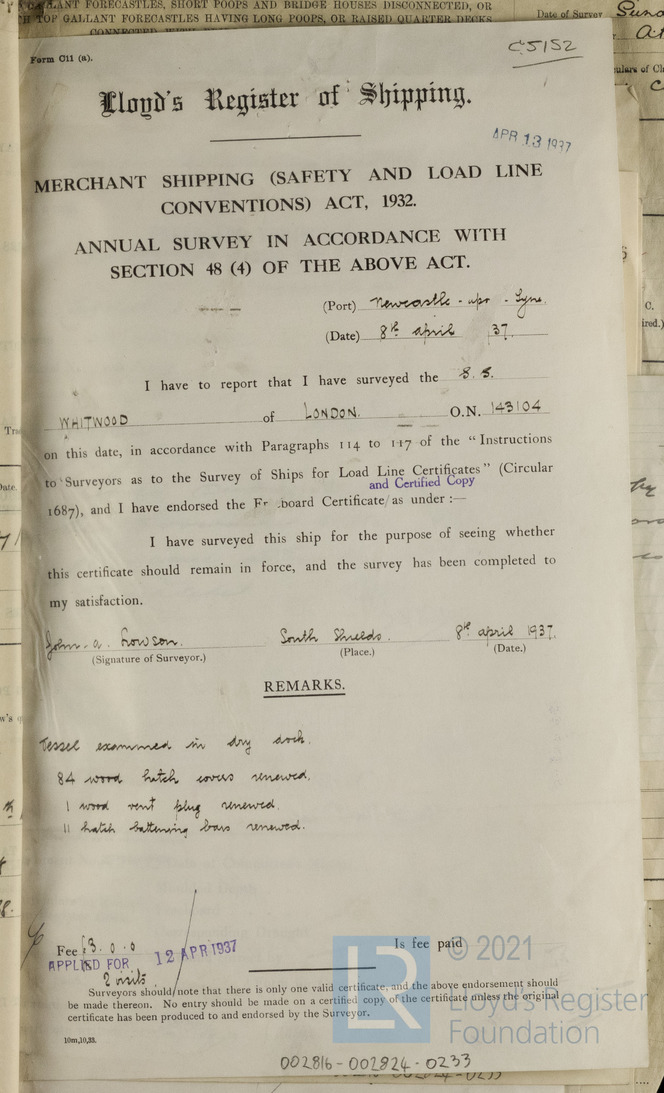 GALLANT FORECASTLES, SHORT POOPS AND BRIDGE HOUSES DISCONNECTED, OR
TOP GALLANT FORECASTLES HAVING LONG POOPS, OR RAISED QUARTER DECKS
CONNECTED
Date of Survey
Form C11 (a).
C5152
Lloyd's Register of Shipping.
APR 13 1937
MERCHANT SHIPPING (SAFETY AND LOAD LINE
CONVENTIONS) ACT, 1932.
ANNUAL SURVEY IN ACCORDANCE WITH
SECTION 48 (4) OF THE ABOVE ACT.
(Port) Newcastle-upon-Tyne.
(Date) 8th April 37.
I have to report that I have surveyed the S.S.
WHITWOOD of LONDON. O.N. 143104
on this date, in accordance with Paragraphs 114 to 117 of the "Instructions
to Surveyors as to the Survey of Ships for Load Line Certificates" (Circular
and Certified Copy
1687), and I have endorsed the Fr board Certificate/as under :—
I have surveyed this ship for the purpose of seeing whether
this certificate should remain in force, and the survey has been completed to
my satisfaction.
John. A. Rowson. South Shields. 8th April 1937.
(Signature of Surveyor.) (Place.) (Date.)
REMARKS.
Vessel examined in dry dock.
84 wood hatch covers renewed.
1 wood vent plug renewed.
11 hatch battening bars renewed.
Fee £3.0.0 Is fee paid
APPLIED FOR 12 APR 1937
2 visits
Surveyors should note that there is only one valid certificate, and the above endorsement should
be made thereon. No entry should be made on a certified copy of the certificate unless the original
certificate has been produced to and endorsed by the Surveyor.
10m,10,33.
© 2021
LR
Lloyd's Register
Foundation
002816-002824-0233